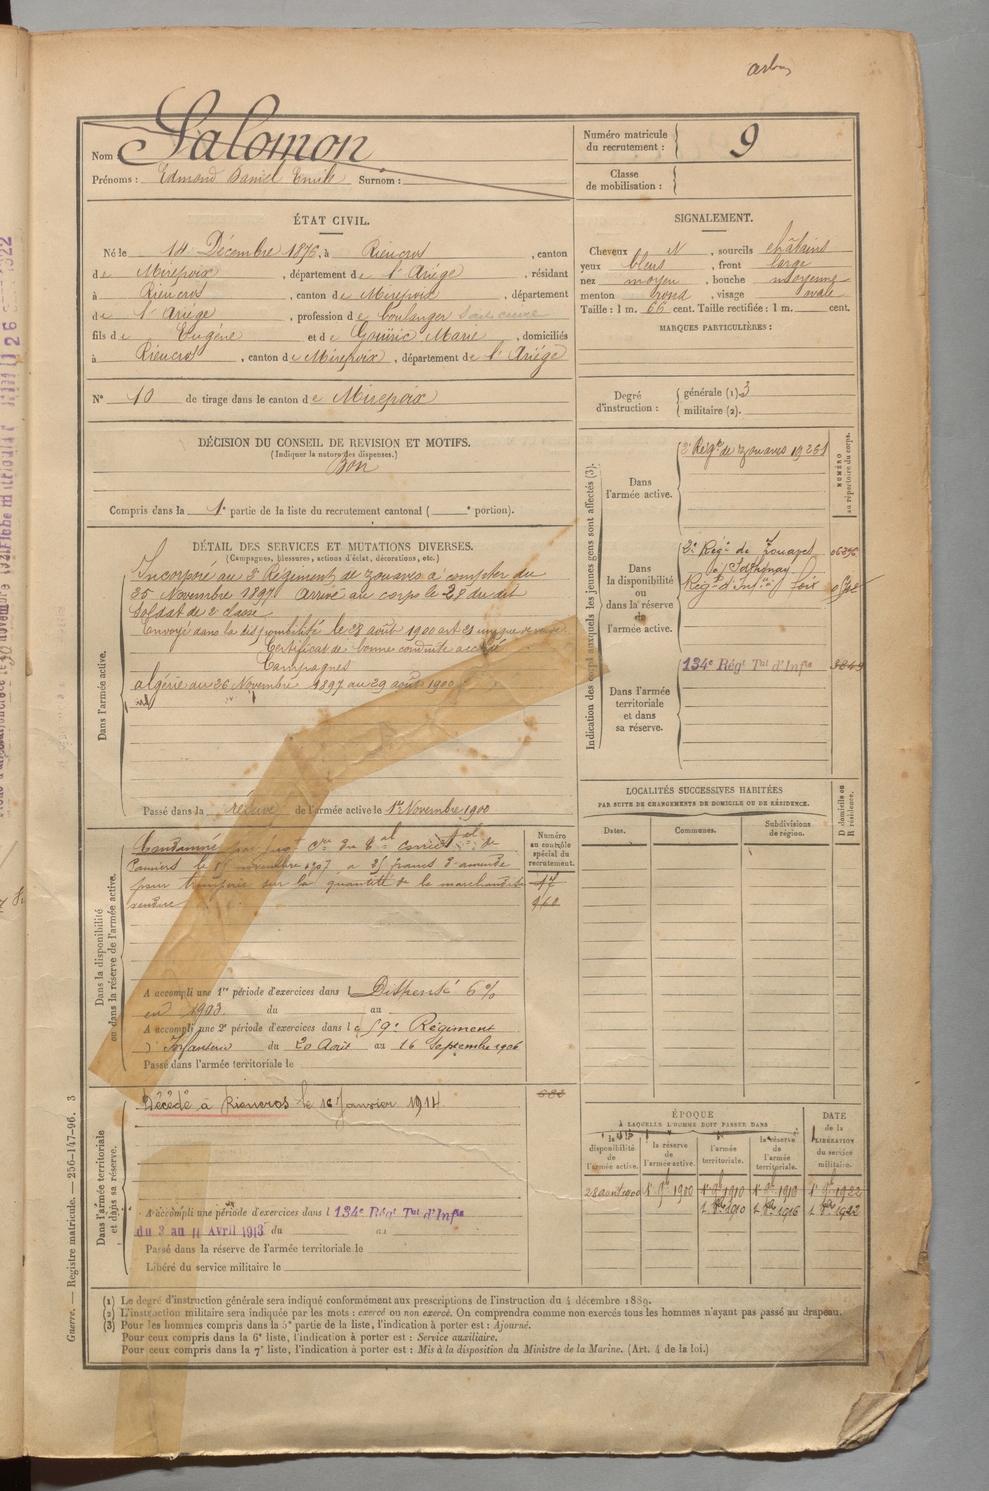 Salomon
Nom
Prénoms : Edmond Daniel Emile Surnom :
Numéro matricule du recrutement : 9
Classe de mobilisation :
ÉTAT CIVIL.
Né le 14 Décembre 1876, à Rieucros, canton
de Mirepoix, département de l'Ariège, résidant
à Rieucros, canton de Mirepoix, département
de l'Ariège, profession de boulanger
fils de Eugène et de Marie, domiciliés
à Rieucros, canton de Mirepoix, département de l'Ariège
N° 10 de tirage dans le canton de Mirepoix
SIGNALEMENT.
Cheveux N, sourcils châtains
yeux bleus, front large
nez moyen, bouche moyenne
menton rond, visage ovale
Taille : 1 m. 66 cent. Taille rectifiée : 1 m. cent.
MARQUES PARTICULIÈRES :
Degré d'instruction : générale (1) 3
militaire (2).
DÉCISION DU CONSEIL DE REVISION ET MOTIFS.
(Indiquer la nature des dispenses.)
Bon
Compris dans la 1e partie de la liste du recrutement cantonal ( e portion).
DÉTAIL DES SERVICES ET MUTATIONS DIVERSES.
(Campagnes, blessures, actions d'éclat, décorations, etc.)
Dans l'armée active.
Incorporé au Régiment de zouaves à compter du
25 Novembre 1897 Arrivé au corps le 28 du dit
Soldat de 2e classe
Envoyé dans la disponibilité le 28 août 1900
Certificat de bonne conduite accordé
Campagnes
algérie du 26 Novembre 1897 au 29 août 1900
Passé dans la réserve de l'armée active le 1er Novembre 1900
Indication des corps auxquels les jeunes gens sont affectés (3).
NUMÉRO au répertoire du corps.
Dans l'armée active.
Régt de zouaves
Dans la disponibilité ou dans la réserve de l'armée active.
2e Régt de Zouaves
à Sathonay
Régt d'Infie Foix
Dans l'armée territoriale et dans sa réserve.
134e Régt Tal d'Infie
LOCALITÉS SUCCESSIVES HABITÉES
PAR SUITE DE CHANGEMENTS DE DOMICILE OU DE RÉSIDENCE.
Dates.
Communes.
Subdivisions de région.
D domicile ou R résidence.
Dans la disponibilité ou dans la réserve de l'armée active.
Condamné par jugt du Tal Correctel de
Pamiers le novembre 1907 à 25 francs d'amende
pour tromperie sur la quantité de la marchandise
vendue
Numéro au contrôle spécial du recrutement.
A accompli une 1re période d'exercices dans l Dispensé 6%
en 1903. du au
A accompli une 2e période d'exercices dans le 59e Régiment
d'Infanterie du 20 Août au 16 Septembre 1906
Passé dans l'armée territoriale le
Dans l'armée territoriale et dans sa réserve.
Décédé à Rieucros le 16 Janvier 1914
A accompli une période d'exercices dans l 134e Régt Tal d'Infie
du 3 au 11 Avril 1913 du au
Passé dans la réserve de l'armée territoriale le
Libéré du service militaire le
ÉPOQUE
À LAQUELLE L'HOMME DOIT PASSER DANS
la disponibilité de l'armée active.
la réserve de l'armée active.
l'armée territoriale.
la réserve de l'armée territoriale.
DATE de la LIBÉRATION du service militaire.
28 août 1900
Guerre. — Registre matricule. — 256-147-96. 3
(1) Le degré d'instruction générale sera indiqué conformément aux prescriptions de l'instruction du 4 décembre 1889.
(2) L'instruction militaire sera indiquée par les mots : exercé ou non exercé. On comprendra comme non exercés tous les hommes n'ayant pas passé au drapeau.
(3) Pour les hommes compris dans la 5e partie de la liste, l'indication à porter est : Ajourné.
Pour ceux compris dans la 6e liste, l'indication à porter est : Service auxiliaire.
Pour ceux compris dans la 7e liste, l'indication à porter est : Mis à la disposition du Ministre de la Marine. (Art. 4 de la loi.)